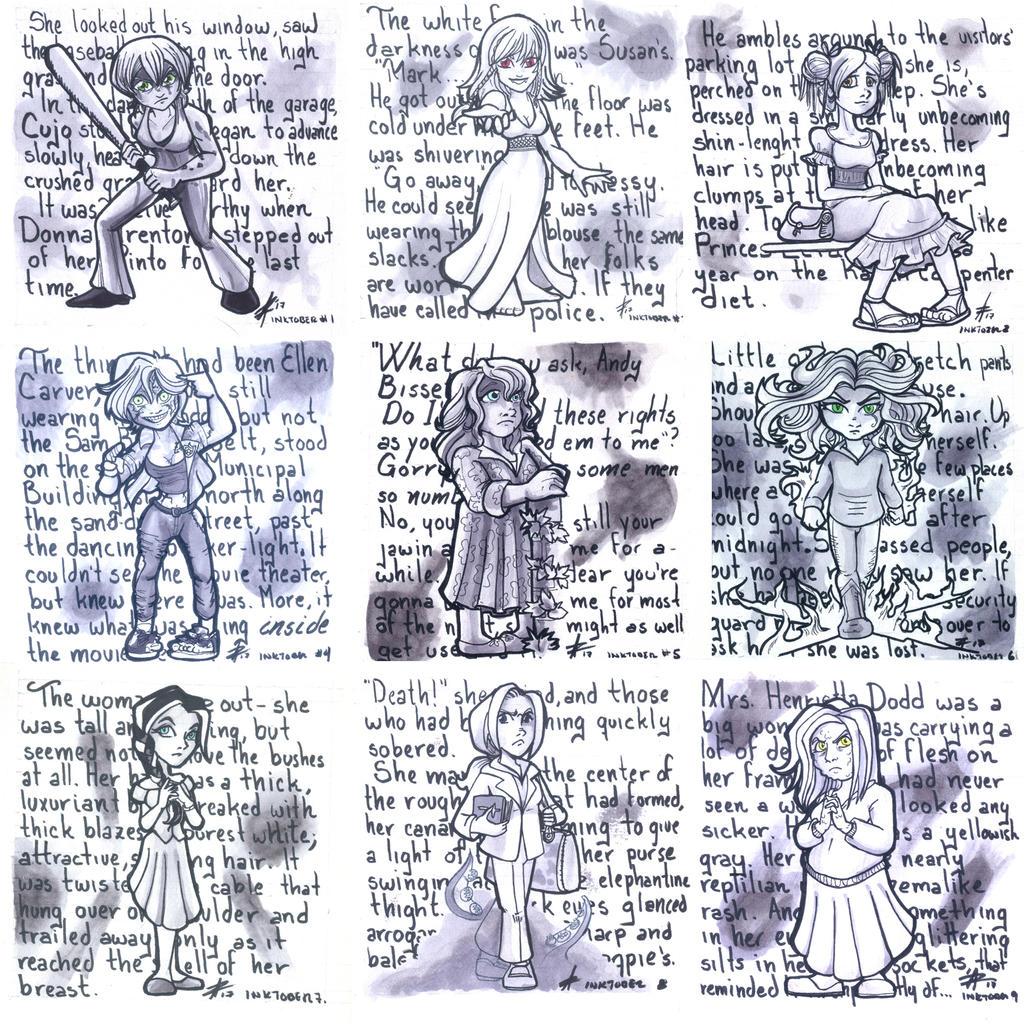 She looked out his window, saw
the baseball ing in the high
gra nd he door.
In the da th of the garage,
Cujo sto egan to advance
slowly, hea down the
crushed gra ard her.
It was ve rthy when
Donna Trenton stepped out
of her Pinto Fo e last
time.
#17 INKTOBER #1
The white f in the
darkness o was Susan's.
"Mark...
He got out The floor was
cold under e feet. He
was shivering
"Go away, to essy.
He could see e was still
wearing th blouse, the same
slacks. her folks
are wor If they
have called police.
#17 INKTOBER #
He ambles around to the visitors'
parking lot she is,
perched on t ep. She's
dressed in a s rly unbecoming
shin-lenght dress. Her
hair is put nbecoming
clumps at t f her
head. To like
Princes sa
year on the Ka penter
diet.
#17 INKTOBER 3
The thin had been Ellen
Carver, still
wearing ad but not
the Sam elt, stood
on the s Municipal
Building north along
the sand-d treet, past
the dancin ker-light. It
couldn't se he ovie theater,
but knew ere as. More, it
knew wha was ing inside
the movie
#17 INKTOBER #4
"What d u ask, Andy
Bisse
Do I these rights
as you d em to me"?
Gorry some men
so num
No, you still your
jawin a me for a-
while. dear you're
gonna me for most
of the n might as well
get us
#17 INKTOBER #5
Little stretch pants
and a use.
Shou hair. Up
oo la herself.
She was e few places
where a erself
ould go after
midnight. S assed people,
but no one saw her. If
she ha security
guard over to
ask h she was lost.
#17 INKTOBER 6
The woma out-she
was tall an ing, but
seemed not ove the bushes
at all. Her h as a thick,
luxuriant b reaked with
thick blazes purest white;
attractive, s ng hair. It
was twiste cable that
hung over o ulder and
trailed away only as it
reached the ell of her
breast.
#17 INKTOBER 7.
"Death!" she d, and those
who had b ning quickly
sobered.
She ma the center of
the rough t had formed,
her cana ning to give
a light of t her purse
swingin a elephantine
thight. k eyes glanced
arrogan arp and
bale gpie's.
#17 INKTOBER 8
Mrs. Henrietta Dodd was a
big wom as carrying a
lot of de of flesh on
her fram had never
seen a w looked any
sicker. H s a yellowish
gray. Her nearly
reptilian zemalike
rash. An omething
in her e glittering
silts in he sockets, that
reminded ly of...
#17 INKTOBER 9